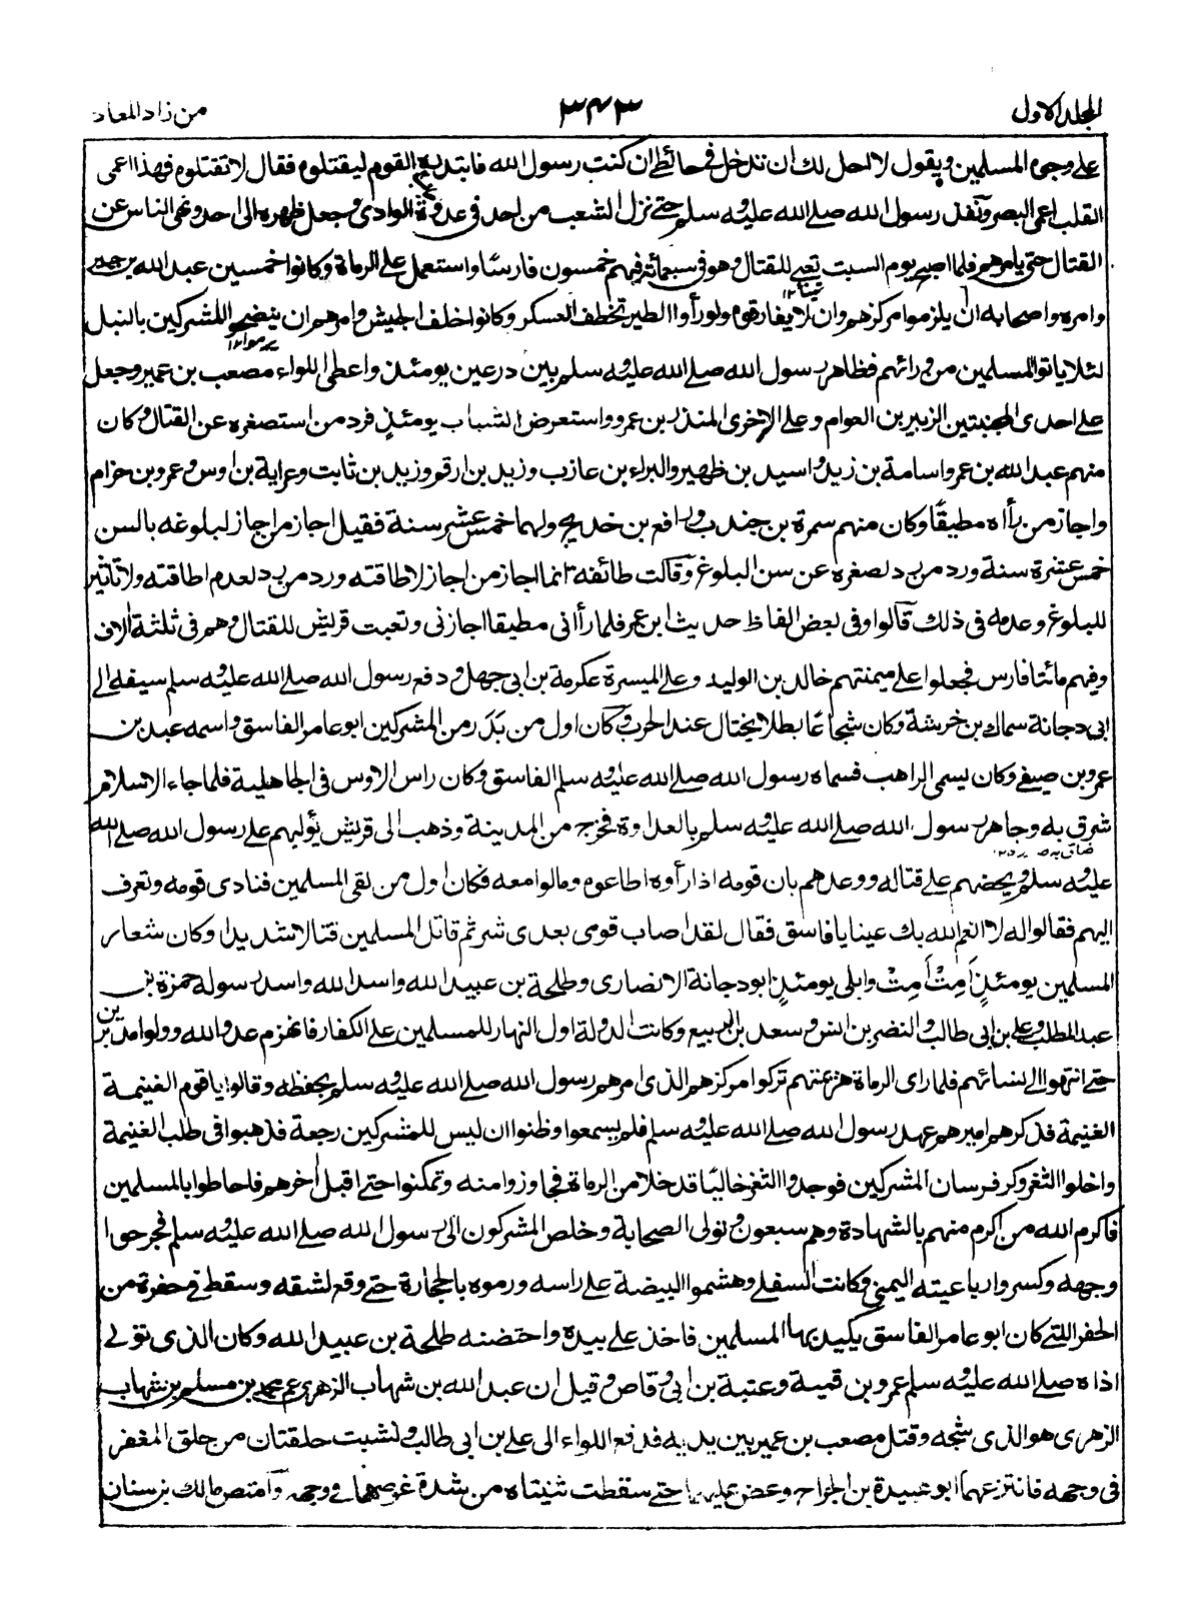 المجلد الاول
٣٤٣
من زاد المعاد
على وجوه المسلمين ويقول لا احل لك ان تدخل فى حائطى ان كنت رسول الله فابتدره القوم ليقتلوه فقال لا تقتلوه فهذا اعمى
القلب اعمى البصر ونفذ رسول الله صلى الله عليه وسلم حتى نزل الشعب من احد فى عدوة الوادى وجعل ظهره الى احد ونهى الناس عن
القتال حتى يامرهم فلما اصبح يوم السبت تعبى للقتال وهو فى سبعمائة فيهم خمسون فارسا واستعمل على الرماة وكانوا خمسين عبد الله بن جبير
وامره واصحابه ان يلزموا مركزهم وان لا يفارقوه ولو رأوا الطير تخطف العسكر وكانوا خلف الجيش وامرهم ان ينضحوا المشركين بالنبل
لئلا ياتوا المسلمين من ورائهم فظاهر رسول الله صلى الله عليه وسلم بين درعين يومئذ واعطى اللواء مصعب بن عمير وجعل
على احدى المجنبتين الزبير بن العوام وعلى الاخرى المنذر بن عمرو واستعرض الشباب يومئذ فرد من استصغره عن القتال وكان
منهم عبد الله بن عمر واسامة بن زيد واسيد بن ظهير والبراء بن عازب وزيد بن ارقم وزيد بن ثابت وعرابة بن اوس وعمرو بن حزام
واجاز من رأاه مطيقا وكان منهم سمرة بن جندب ورافع بن خديج ولهما خمس عشر سنة فقيل اجاز من اجاز لبلوغه بالسن
خمس عشرة سنة ورد من رد لصغره عن سن البلوغ وقالت طائفه انما اجاز من اجاز لاطاقته ورد من رد لعدم اطاقته ولا تاثير
للبلوغ وعدمه فى ذلك قالوا وفى بعض الفاظ حديث ابن عمر فلما رأنى مطيقا اجازنى وتعبت قريش للقتال وهم فى ثلثة الاف
وفيهم مائتا فارس فجعلوا على ميمنتهم خالد بن الوليد وعلى الميسرة عكرمة بن ابى جهل ودفع رسول الله صلى الله عليه وسلم سيفه الى
ابى دجانة سماك بن خرشة وكان شجاعا بطلا يختال عند الحرب وكان اول من بدر من المشركين ابو عامر الفاسق واسمه عبد بن
عمرو بن صيفى وكان يسمى الراهب فسماه رسول الله صلى الله عليه وسلم الفاسق وكان راس الاوس فى الجاهلية فلما جاء الاسلام
شرق به وجاهر رسول الله صلى الله عليه وسلم بالعداوة فخرج من المدينة وذهب الى قريش يؤلبهم على رسول الله صلى الله
عليه وسلم ويحضهم على قتاله ووعدهم بان قومه اذا رأوه اطاعوه ومالوا معه فكان اول من لقى المسلمين فنادى قومه وتعرف
اليهم فقالوا له لا انعم الله بك عينا يا فاسق فقال لقد اصاب قومى بعدى شر ثم قاتل المسلمين قتالا شديدا وكان شعار
المسلمين يومئذ أمِتْ أمِتْ وابلى يومئذ ابو دجانة الانصارى وطلحة بن عبيد الله واسد الله واسد رسوله حمزة بن
عبد المطلب وعلى بن ابى طالب والنضر بن انس وسعد بن الربيع وكانت الدولة اول النهار للمسلمين على الكفار فانهزم عدو الله وولوا مدبرين
حتى انتهوا الى نسائهم فلما راى الرماة هزيمتهم تركوا مركزهم الذى امرهم رسول الله صلى الله عليه وسلم بحفظه وقالوا يا قوم الغنيمة
الغنيمة فذكرهم اميرهم عهد رسول الله صلى الله عليه وسلم فلم يسمعوا وظنوا ان ليس للمشركين رجعة فذهبوا فى طلب الغنيمة
واخلوا الثغر وكر فرسان المشركين فوجدوا الثغر خاليا قد خلا من الرماة فجاوزوا منه وتمكنوا حتى اقبل أخرهم فاحاطوا بالمسلمين
فاكرم الله من اكرم منهم بالشهادة وهم سبعون وتولى الصحابة وخلص المشركون الى رسول الله صلى الله عليه وسلم فجرحوا
وجهه وكسروا رباعيته اليمنى وكانت السفلى وهشموا البيضة على راسه ورموه بالحجارة حتى وقع لشقه وسقط فى حفرة من
الحفر اللتى كان ابو عامر الفاسق يكيد بها المسلمين فاخذ على بيده واحتضنه طلحة بن عبيد الله وكان الذى تولى
اذاه صلى الله عليه وسلم عمرو بن قمية وعتبة بن ابى وقاص وقيل ان عبد الله بن شهاب الزهرى عم محمد بن مسلم بن شهاب
الزهرى هو الذى شجه وقتل مصعب بن عمير بين يديه فدفع اللواء الى على بن ابى طالب ونشبت حلقتان من حلق المغفر
فى وجهه فانتزعهما ابو عبيدة بن الجراح وعض عليهما حتى سقطت ثنيتاه من شدة غوصهما فى وجهه وامتص مالك بن سنان